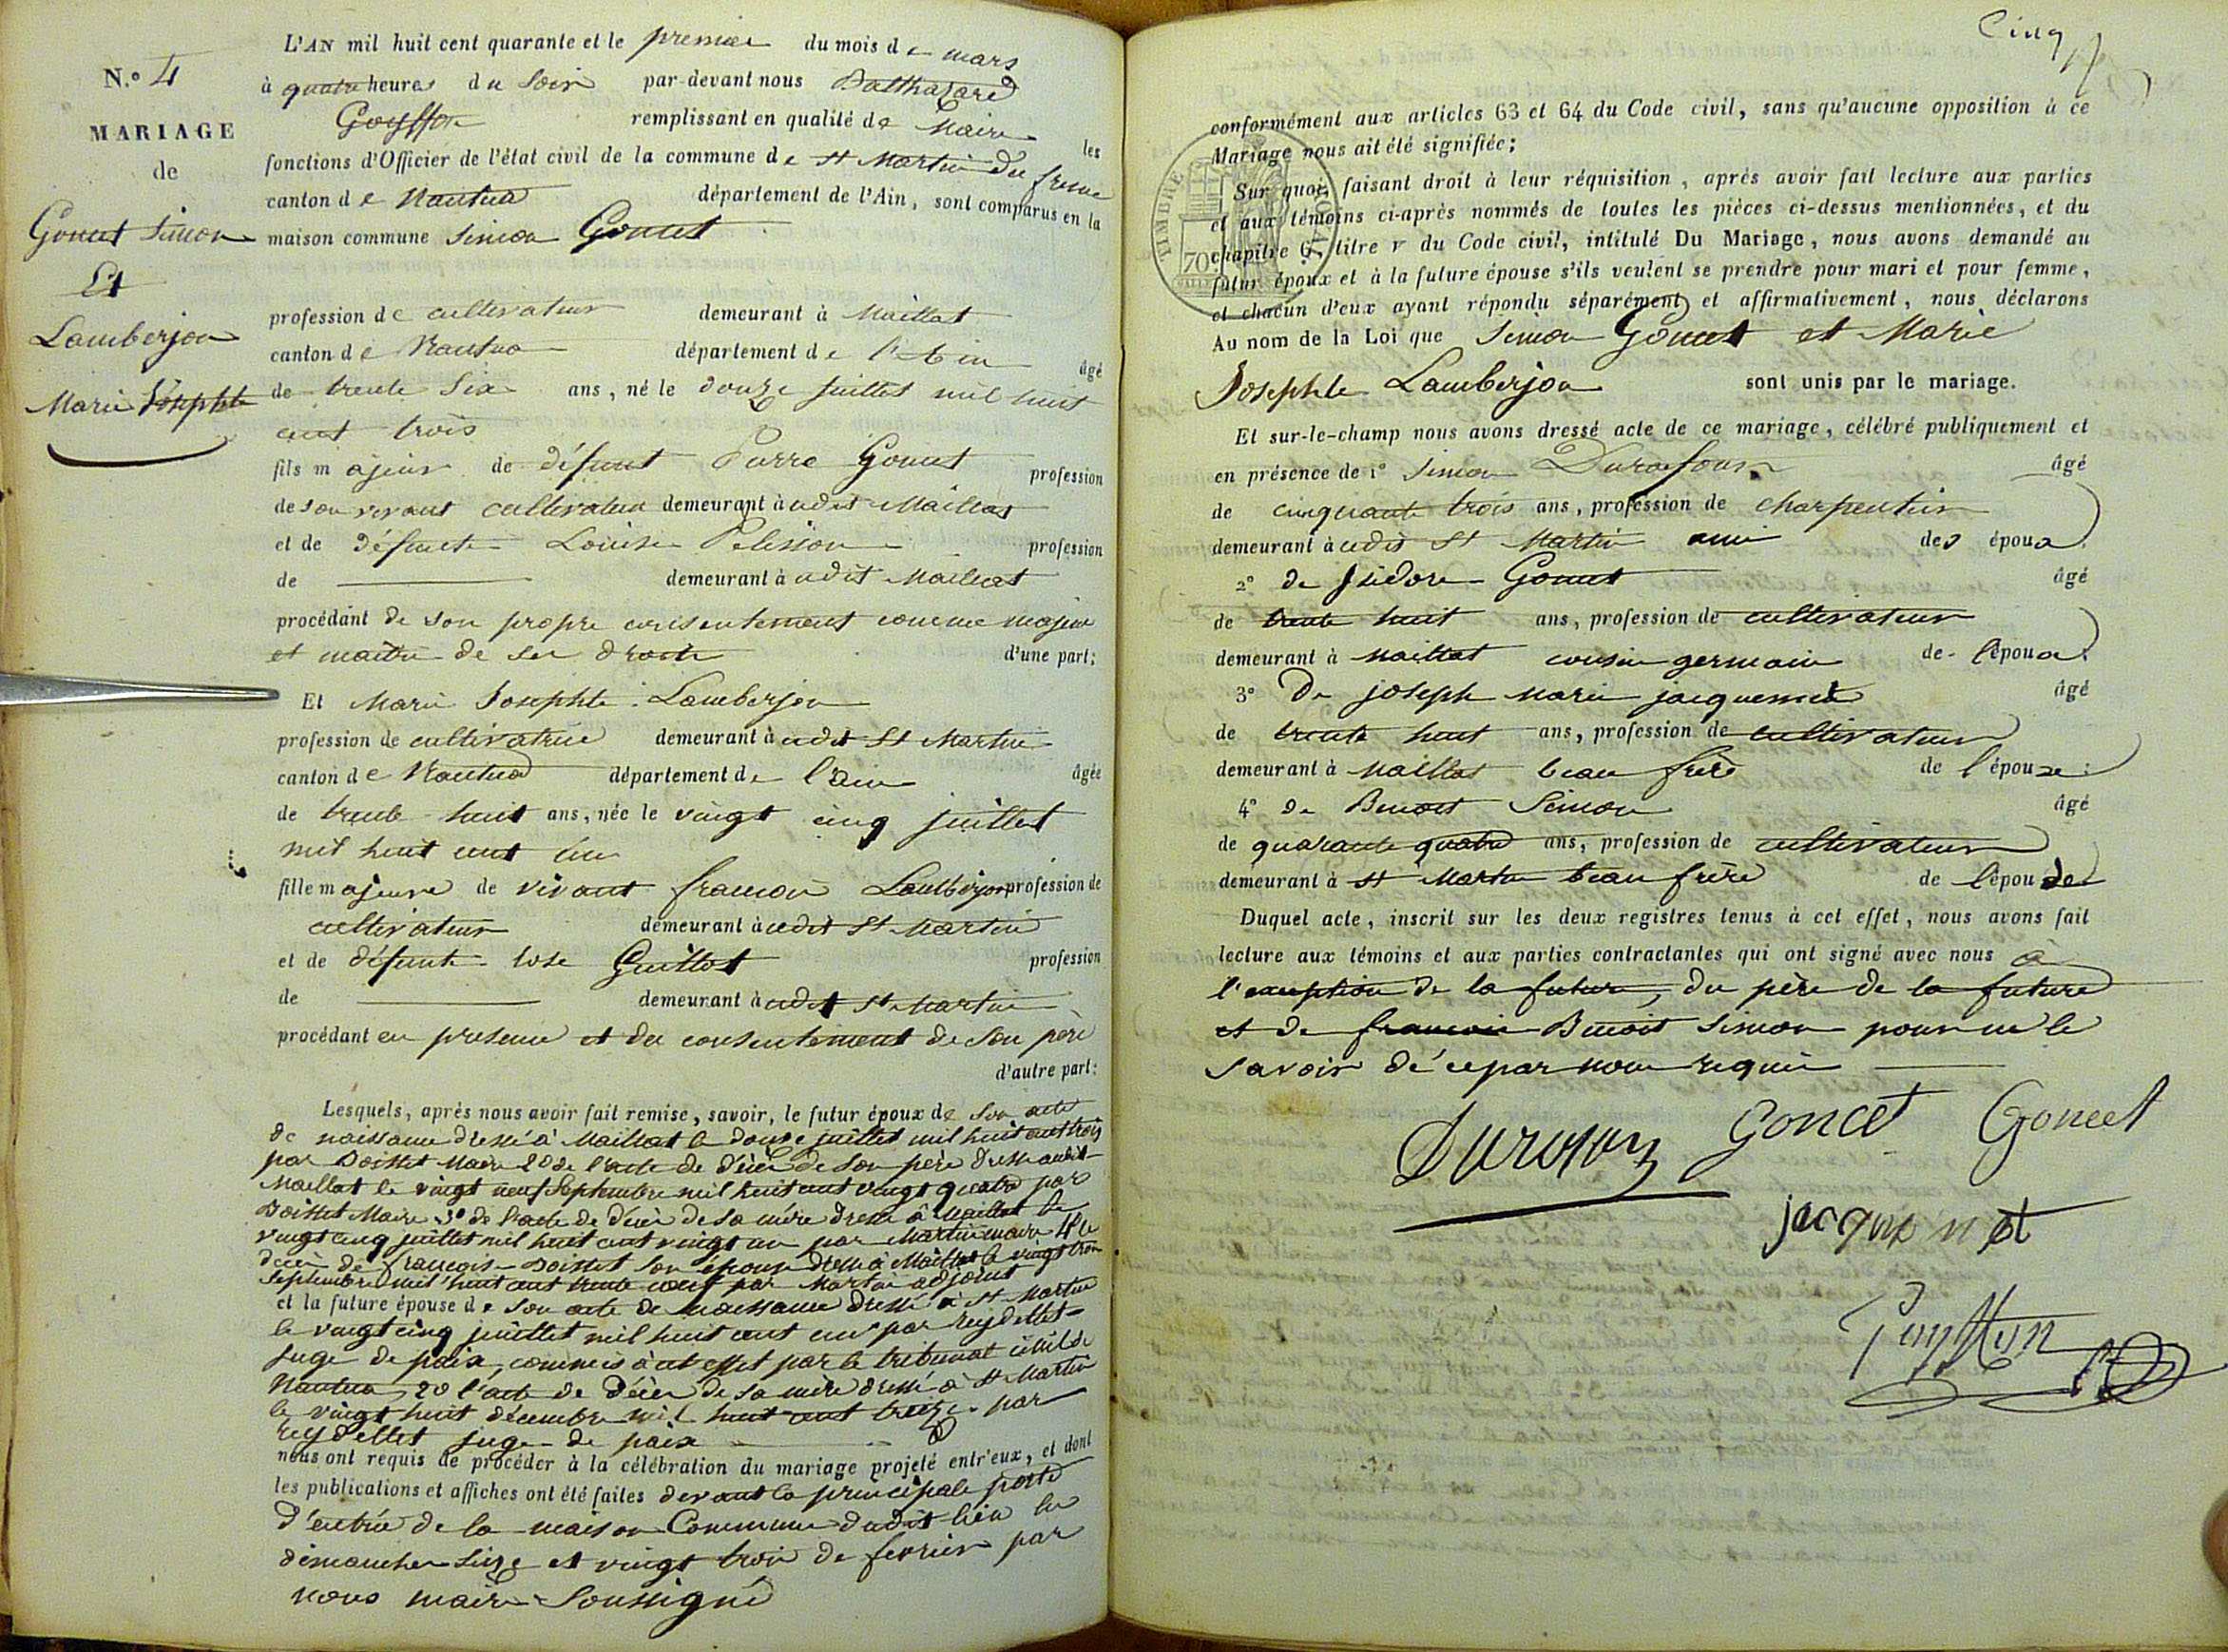 N.º 4
MARIAGE
de
Goncet Simon
Et
Lamberjon
Marie Josephte
L'AN mil huit cent quarante et le premier du mois de mars
à quatre heures du soir par-devant nous Balthazard
Goyffon remplissant en qualité de Maire les
fonctions d'Officier de l'état civil de la commune de st Martin du fresne
canton de Nantua département de l'Ain, sont comparus en la
maison commune Simon Goncet
profession de cultivateur demeurant à Maillat
canton de Nantua département de l'Ain âgé
de trente Six ans, né le douze juillet mil huit
cent trois
fils majeur de défunt Pierre Goncet profession
de son vivant cultivateur demeurant à udit Maillat
et de défuncte Louise Pelisson profession
de demeurant à udit Maillat
procédant de son propre consentement comme majeur
et maitre de ses droits d'une part;
Et Marie Josephte Lamberjon
profession de cultivatrice demeurant à udit St Martin
canton de Nantua département de l'ain âgée
de trente huit ans, née le vingt cinq juillet
mil huit cent un
fille majeure de vivant francois Lamberjon profession de
cultivateur demeurant à udit St Martin
et de défunte Guillot profession
de demeurant à udit st Martin
procédant en presence et du consentement de son père
d'autre part:
Lesquels, après nous avoir fait remise, savoir, le futur époux de son acte
de naissance dressé à Maillat le douze juillet mil huit cent trois
par Doisset Maire 2º de l'acte de décès de son père dressé audit
Maillat le vingt neuf Septembre mil huit cent vingt quatre par
Doisset Maire 3º de l'acte de décès de sa mère dressé à Maillat le
vingt cinq juillet mil huit cent vingt un par Martin maire 4º le
décès de francoise Doisset son épouse dressé à Maillat le vingt trois
Septembre mil huit cent trente neuf par Martin adjoint
et la future épouse de son acte de naissance dressé à St Martin
le vingt cinq juillet mil huit cent un par reydellet
juge de paix, commis à cet effet par le tribunal civil de
Nantua, 2º l'acte de décès de sa mère dressé à St Martin
le vingt huit décembre mil huit cent treize par
reydellet juge de paix
nous ont requis de procéder à la célébration du mariage projeté entr'eux, et dont
les publications et affiches ont été faites devant la principale porte
d'entrée de la maison Commune dudit lieu les
dimanches Seize et vingt trois de fevrier par
nous maire Soussigné
Cinq
conformément aux articles 63 et 64 du Code civil, sans qu'aucune opposition à ce
Mariage nous ait été signifiée;
Sur quoi, faisant droit à leur réquisition, après avoir fait lecture aux parties
et aux témoins ci-après nommés de toutes les pièces ci-dessus mentionnées, et du
chapitre 6, titre v du Code civil, intitulé Du Mariage, nous avons demandé au
futur époux et à la future épouse s'ils veulent se prendre pour mari et pour femme,
et chacun d'eux ayant répondu séparément et affirmativement, nous déclarons
Au nom de la Loi que Simon Goncet et Marie
Josephte Lamberjon sont unis par le mariage.
Et sur-le-champ nous avons dressé acte de ce mariage, célébré publiquement et
en présence de 1º Simon Durafour âgé
de cinquante trois ans, profession de charpentier
demeurant à udit St Martin ami des époux
2º de Isidore Goncet âgé
de trente huit ans, profession de cultivateur
demeurant à Maillat cousin germain de l'époux
3º De joseph marie jacquemet âgé
de trente huit ans, profession de cultivateur
demeurant à Maillat beau frère de l'épouse
4º de Benoit Simon âgé
de quarante quatre ans, profession de cultivateur
demeurant à st Martin beau frère de l'épouse
Duquel acte, inscrit sur les deux registres tenus à cet effet, nous avons fait
lecture aux témoins et aux parties contractantes qui ont signé avec nous à
l'exception de la future, du père de la future
et de francois Benoit Simon pour ne le
savoir de ce par nous requis
Durafour Goncet Goncet
jacquemet
Goyffon
TIMBRE ROYAL
70